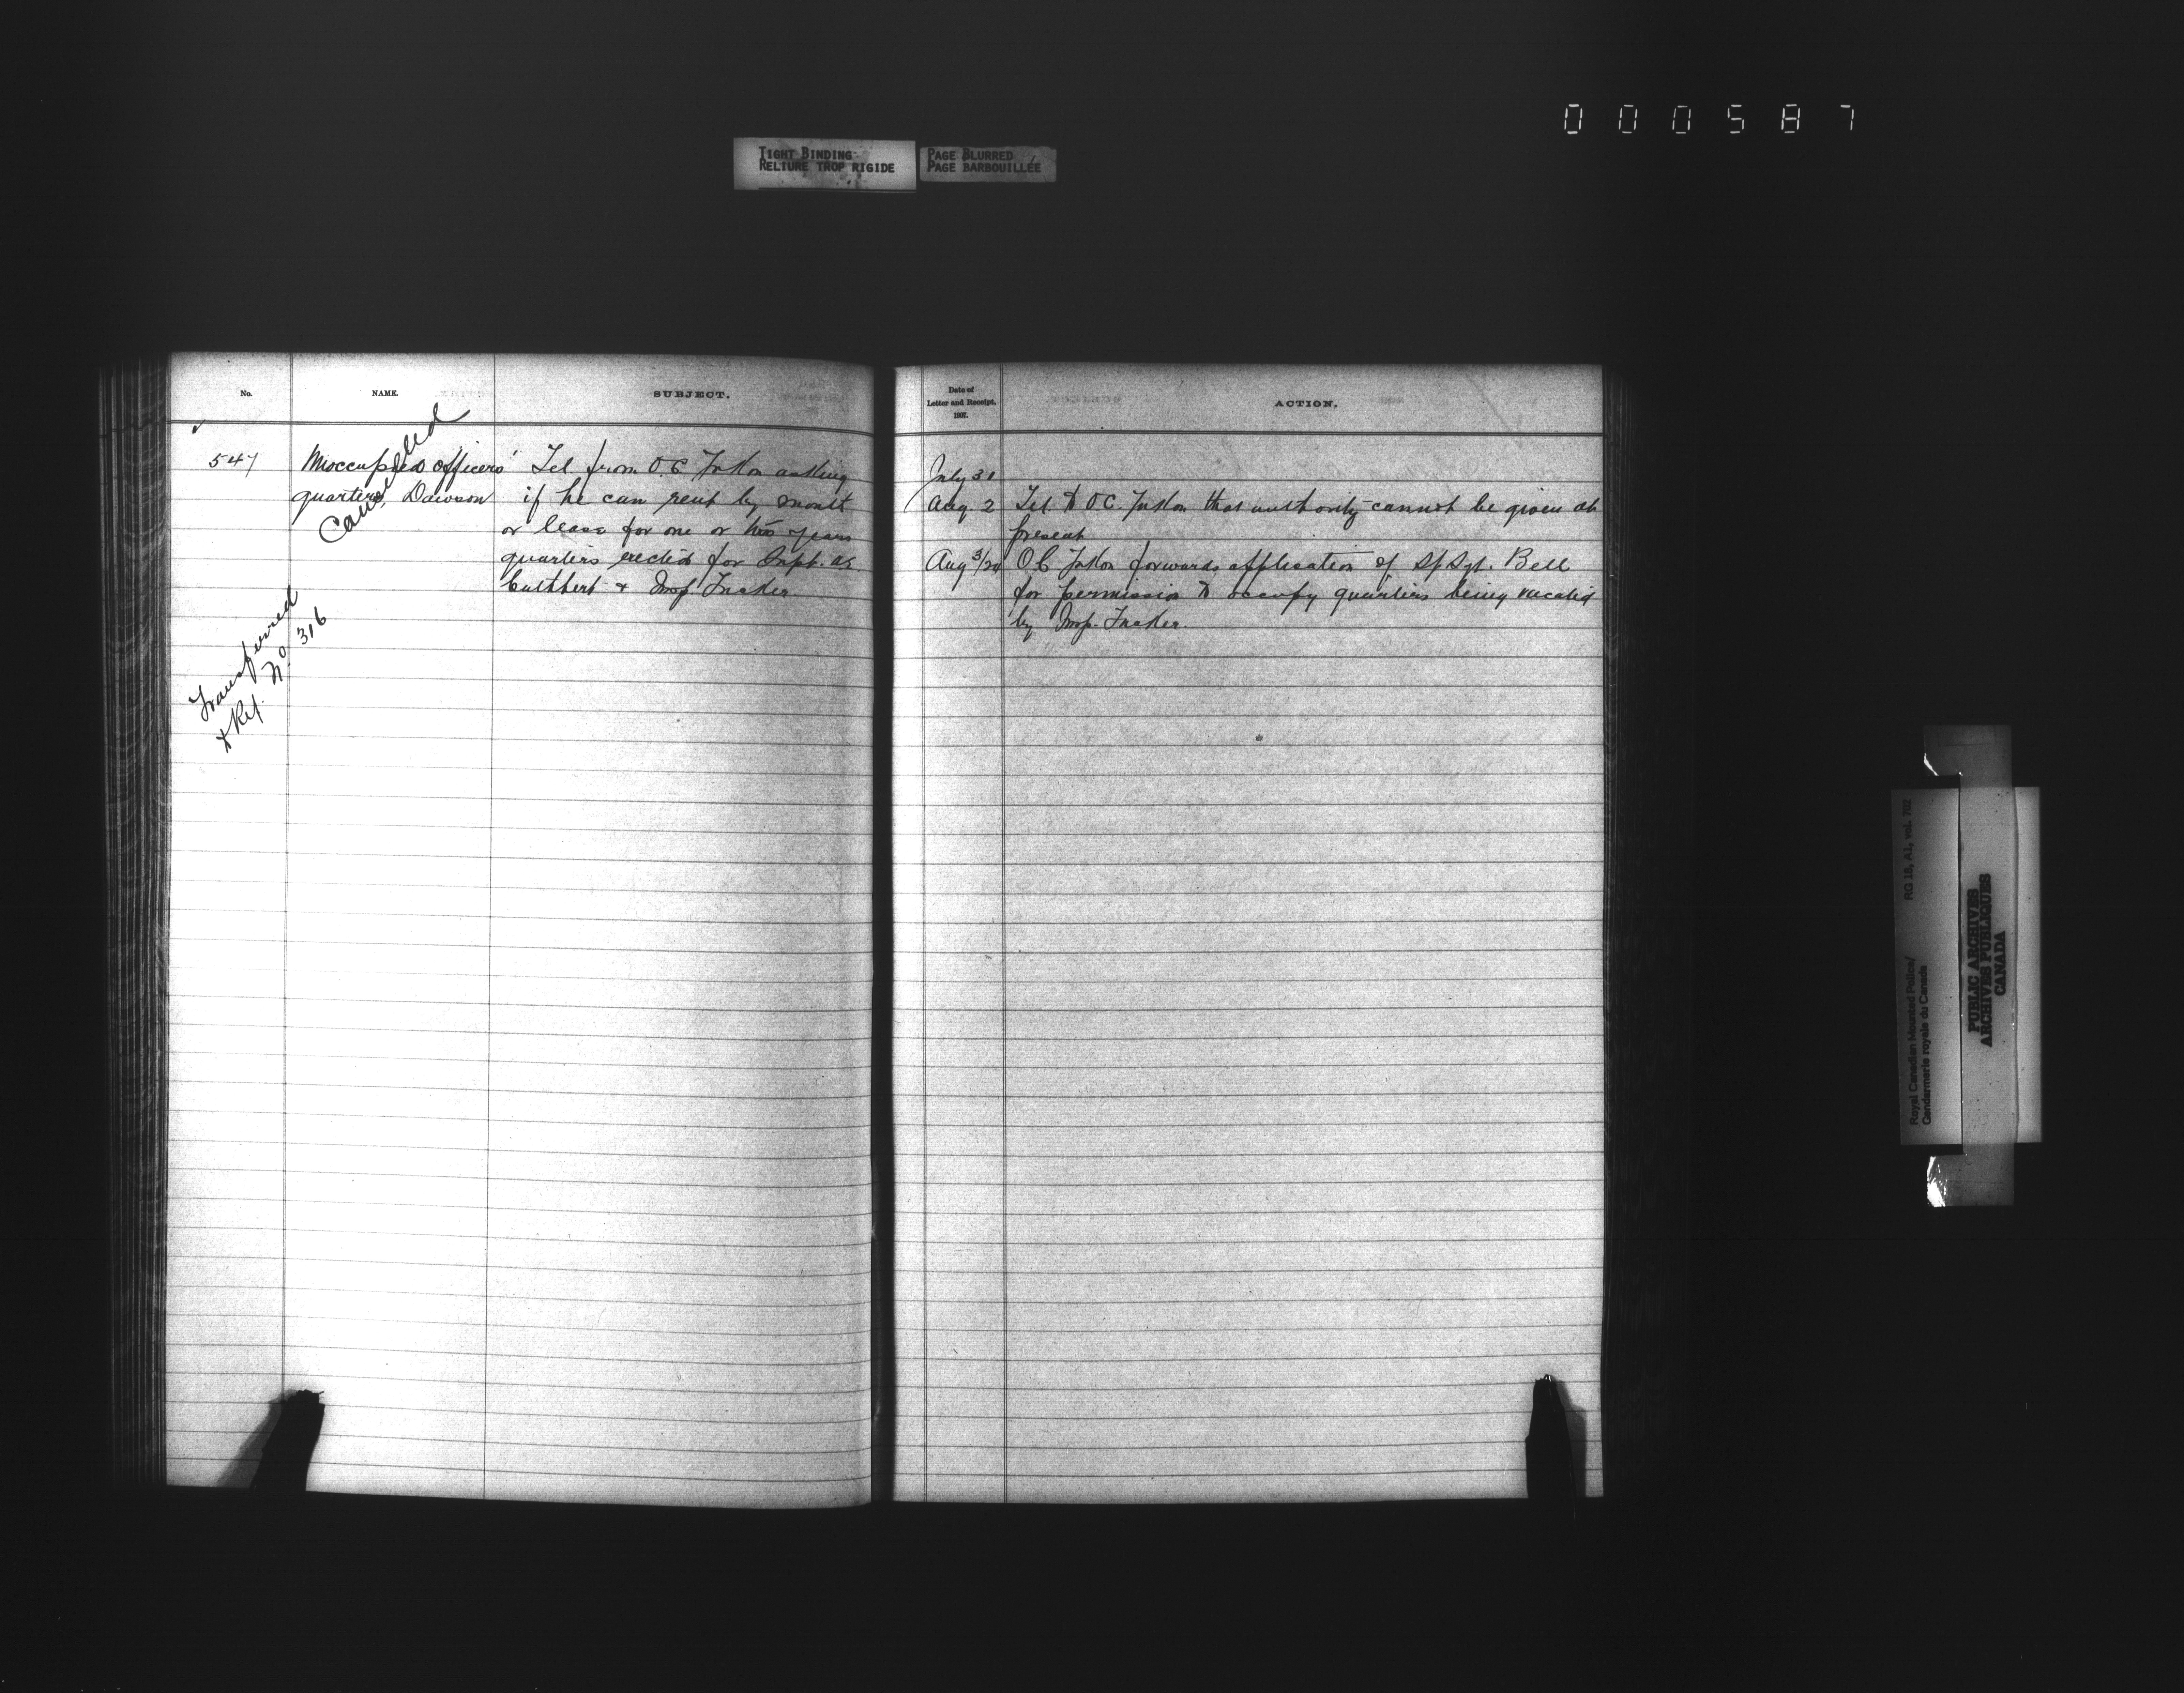 000587
TIGHT BINDING
RELIURE TROP RIGIDE
PAGE BLURRED
PAGE BARBOUILLÉE
No.
NAME.
SUBJECT.
547
Unoccupied officers'
quarters, Dawson
Cancelled
Transferred
to Ref. No. 316
Tel from O.C. Yukon asking
if he can rent by month
or lease for one or two years
quarters erected for Supt. as.
Cuthbert & Insp. Tucker.
Date of
Letter and Receipt,
1907.
ACTION.
July 31
Aug. 2 Tel to O.C. Yukon that authority cannot be given at
present
Aug 3/20 O C Yukon forwards application of S/Sgt. Bell
for permission to occupy quarters being vacated
by Insp. Tucker.
Royal Canadian Mounted Police/ RG 18, A1, vol. 702
Gendarmerie royale du Canada
PUBLIC ARCHIVES
ARCHIVES PUBLIQUES
CANADA